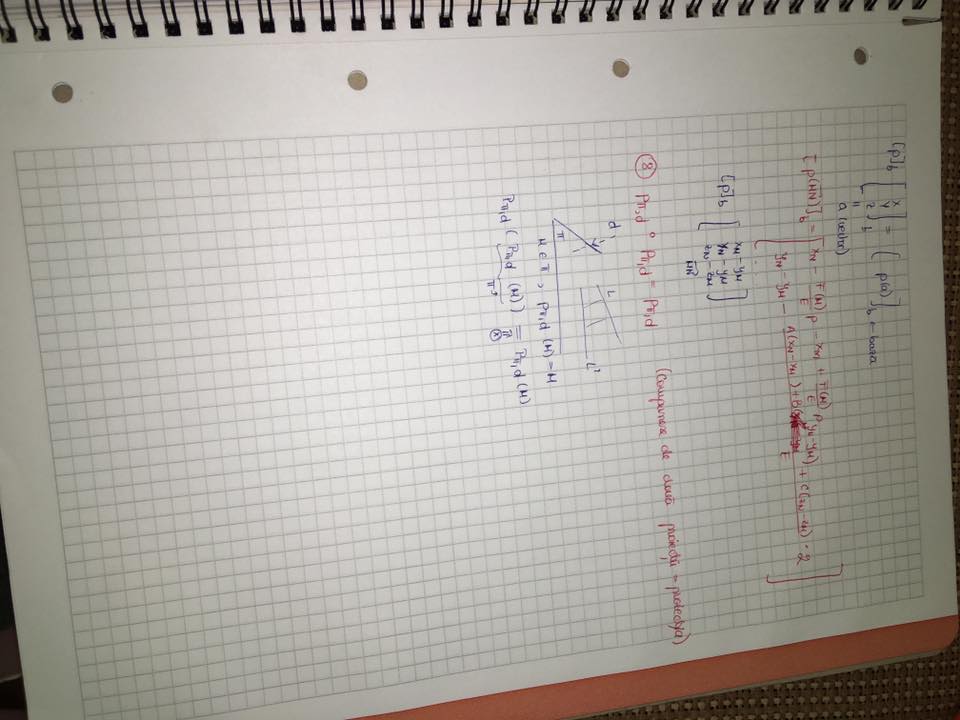 [p]_b [x y z]_b = ( p(a)]_b ← baza
a (vector)
[p(MN)]_b = [ x_N - F(N)/E p - x_M + F(M)/E p
y_N - y_M - A(x_N - x_M) + B( y_N - y_M) + C(z_N - z_M) / E · 2 ]
[p]_b [ x_N - y_M
y_N - y_M
z_N - z_M ]
MN
⑧ P_π,d ∘ P_π,d = P_π,d (Compunerea de două proiecții = proiecția)
d
π
L
L'
M ∈ π ⇒ P_π,d (M) = M
P_π,d ( P_π,d (M) ) = P_π,d (M)